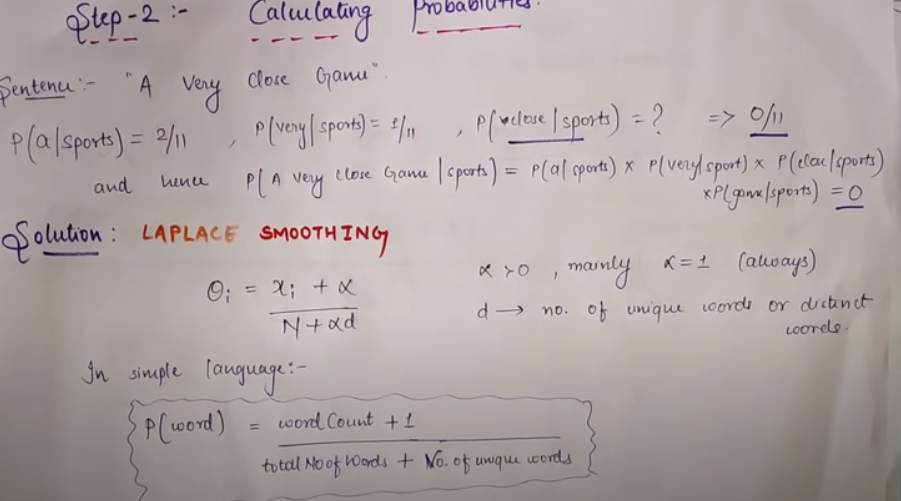 Step-2 :- Calculating Probabilities.
Sentence:- "A Very Close Game".
P(a|sports) = 2/11 , P(very|sports) = 1/11 , P(close|sports) = ? => 0/11
and hence P(A very close Game|sports) = P(a|sports) × P(very|sport) × P(close|sports)
×P(game|sports) = 0
Solution: LAPLACE SMOOTHING
α >0 , mainly α = 1 (always)
θi = xi + α
N + αd
d → no. of unique words or distinct
words.
In simple language:-
P(word) = word Count + 1
total No of Words + No. of unique words